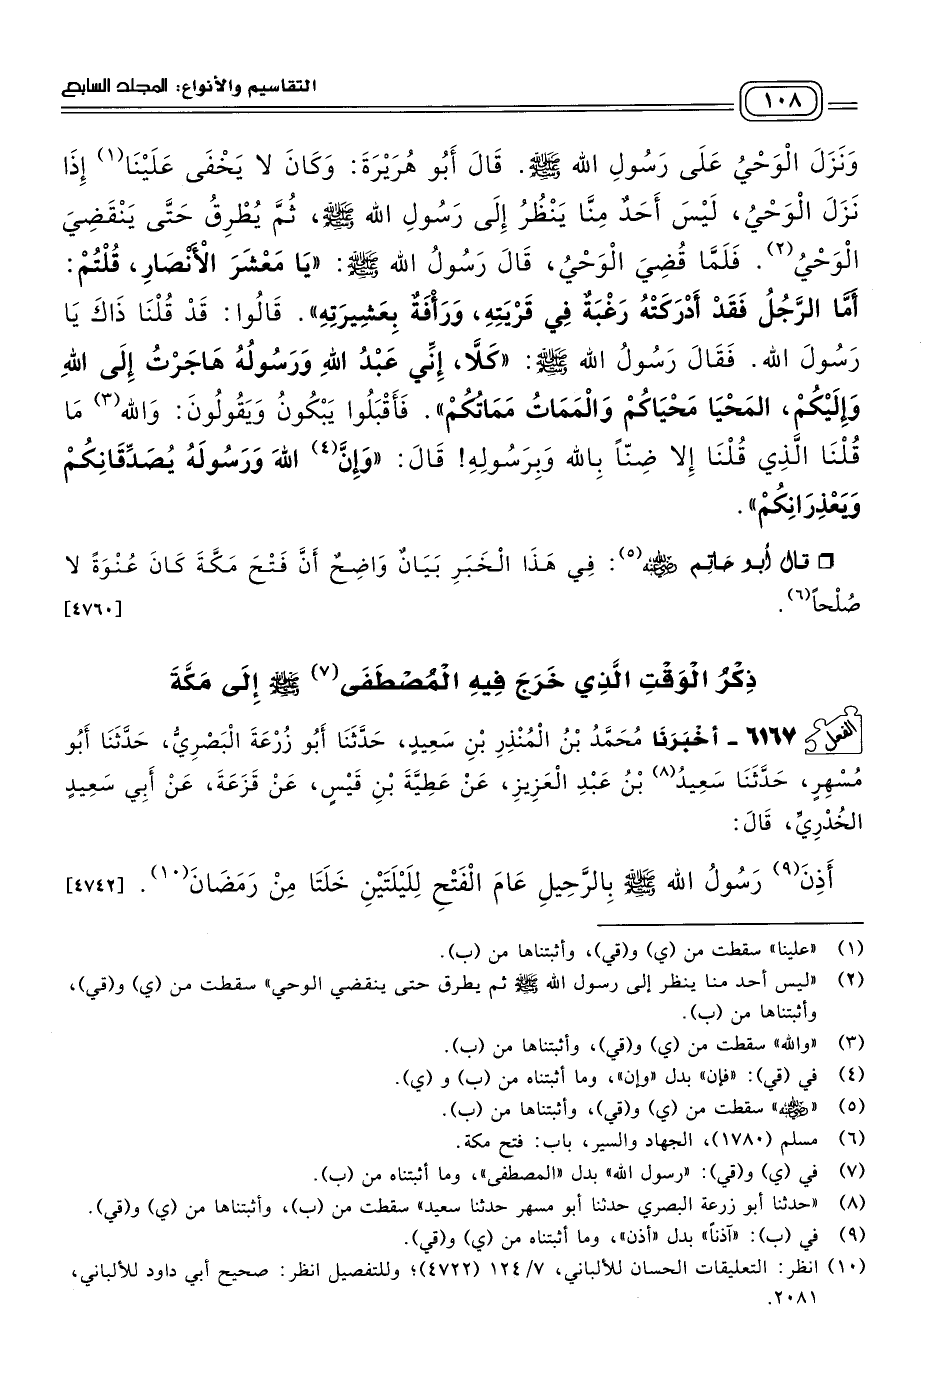 ١٠٨
التقاسيم والأنواع: المجلد السابع
وَنَزَلَ الْوَحْيُ عَلَى رَسُولِ الله ﷺ. قَالَ أَبُو هُرَيْرَةَ: وَكَانَ لا يَخْفَى عَلَيْنَا(١) إِذَا
نَزَلَ الْوَحْيُ، لَيْسَ أَحَدٌ مِنَّا يَنْظُرُ إِلَى رَسُولِ الله ﷺ، ثُمَّ يُطْرِقُ حَتَّى يَنْقَضِيَ
الْوَحْيُ(٢). فَلَمَّا قُضِيَ الْوَحْيُ، قَالَ رَسُولُ الله ﷺ: «يَا مَعْشَرَ الْأَنْصَارِ، قُلْتُمْ:
أَمَّا الرَّجُلُ فَقَدْ أَدْرَكَتْهُ رَغْبَةٌ فِي قَرْيَتِهِ، وَرَأْفَةٌ بِعَشِيرَتِهِ». قَالُوا: قَدْ قُلْنَا ذَاكَ يَا
رَسُولَ الله. فَقَالَ رَسُولُ الله ﷺ: «كَلَّا، إِنِّي عَبْدُ اللهِ وَرَسُولُهُ هَاجَرْتُ إِلَى اللهِ
وَإِلَيْكُمْ، المَحْيَا مَحْيَاكُمْ وَالْمَمَاتُ مَمَاتُكُمْ». فَأَقْبَلُوا يَبْكُونُ وَيَقُولُونَ: وَالله(٣) مَا
قُلْنَا الَّذِي قُلْنَا إِلا ضِنّاً بِالله وَبِرَسُولِهِ! قَالَ: «وَإِنَّ(٤) اللهَ وَرَسُولَهُ يُصَدِّقَانِكُمْ
وَيَعْذِرَانِكُمْ».
❒ قال أبو حاتم ﵁(٥): فِي هَذَا الْخَبَرِ بَيَانٌ وَاضِحٌ أَنَّ فَتْحَ مَكَّةَ كَانَ عُنْوَةً لا
صُلْحاً(٦). [٤٧٦٠]
ذِكْرُ الْوَقْتِ الَّذِي خَرَجَ فِيهِ الْمُصْطَفَى(٧) ﷺ إِلَى مَكَّةَ
الفعل ٦١٦٧ - أَخْبَرَنَا مُحَمَّدُ بْنُ الْمُنْذِرِ بْنِ سَعِيدٍ، حَدَّثَنَا أَبُو زُرْعَةَ الْبَصْرِيُّ، حَدَّثَنَا أَبُو
مُسْهِرٍ، حَدَّثَنَا سَعِيدُ(٨) بْنُ عَبْدِ الْعَزِيزِ، عَنْ عَطِيَّةَ بْنِ قَيْسٍ، عَنْ قَزَعَةَ، عَنْ أَبِي سَعِيدٍ
الخُدْرِيِّ، قَالَ:
أَذِنَ(٩) رَسُولُ الله ﷺ بِالرَّحِيلِ عَامَ الْفَتْحِ لِلَيْلَتَيْنِ خَلَتَا مِنْ رَمَضَانَ(١٠). [٤٧٤٢]
(١) «علينا» سقطت من (ي) و(قي)، وأثبتناها من (ب).
(٢) «ليس أحد منا ينظر إلى رسول الله ﷺ ثم يطرق حتى ينقضي الوحي» سقطت من (ي) و(قي)،
وأثبتناها من (ب).
(٣) «والله» سقطت من (ي) و(قي)، وأثبتناها من (ب).
(٤) في (قي): «فإن» بدل «وإن»، وما أثبتناه من (ب) و (ي).
(٥) «﵁» سقطت من (ي) و(قي)، وأثبتناها من (ب).
(٦) مسلم (١٧٨٠)، الجهاد والسير، باب: فتح مكة.
(٧) في (ي) و(قي): «رسول الله» بدل «المصطفى»، وما أثبتناه من (ب).
(٨) «حدثنا أبو زرعة البصري حدثنا أبو مسهر حدثنا سعيد» سقطت من (ب)، وأثبتناها من (ي) و(قي).
(٩) في (ب): «آذناً» بدل «أذن»، وما أثبتناه من (ي) و(قي).
(١٠) انظر: التعليقات الحسان للألباني، ٧/ ١٢٤ (٤٧٢٢)؛ وللتفصيل انظر: صحيح أبي داود للألباني،
٢٠٨١.